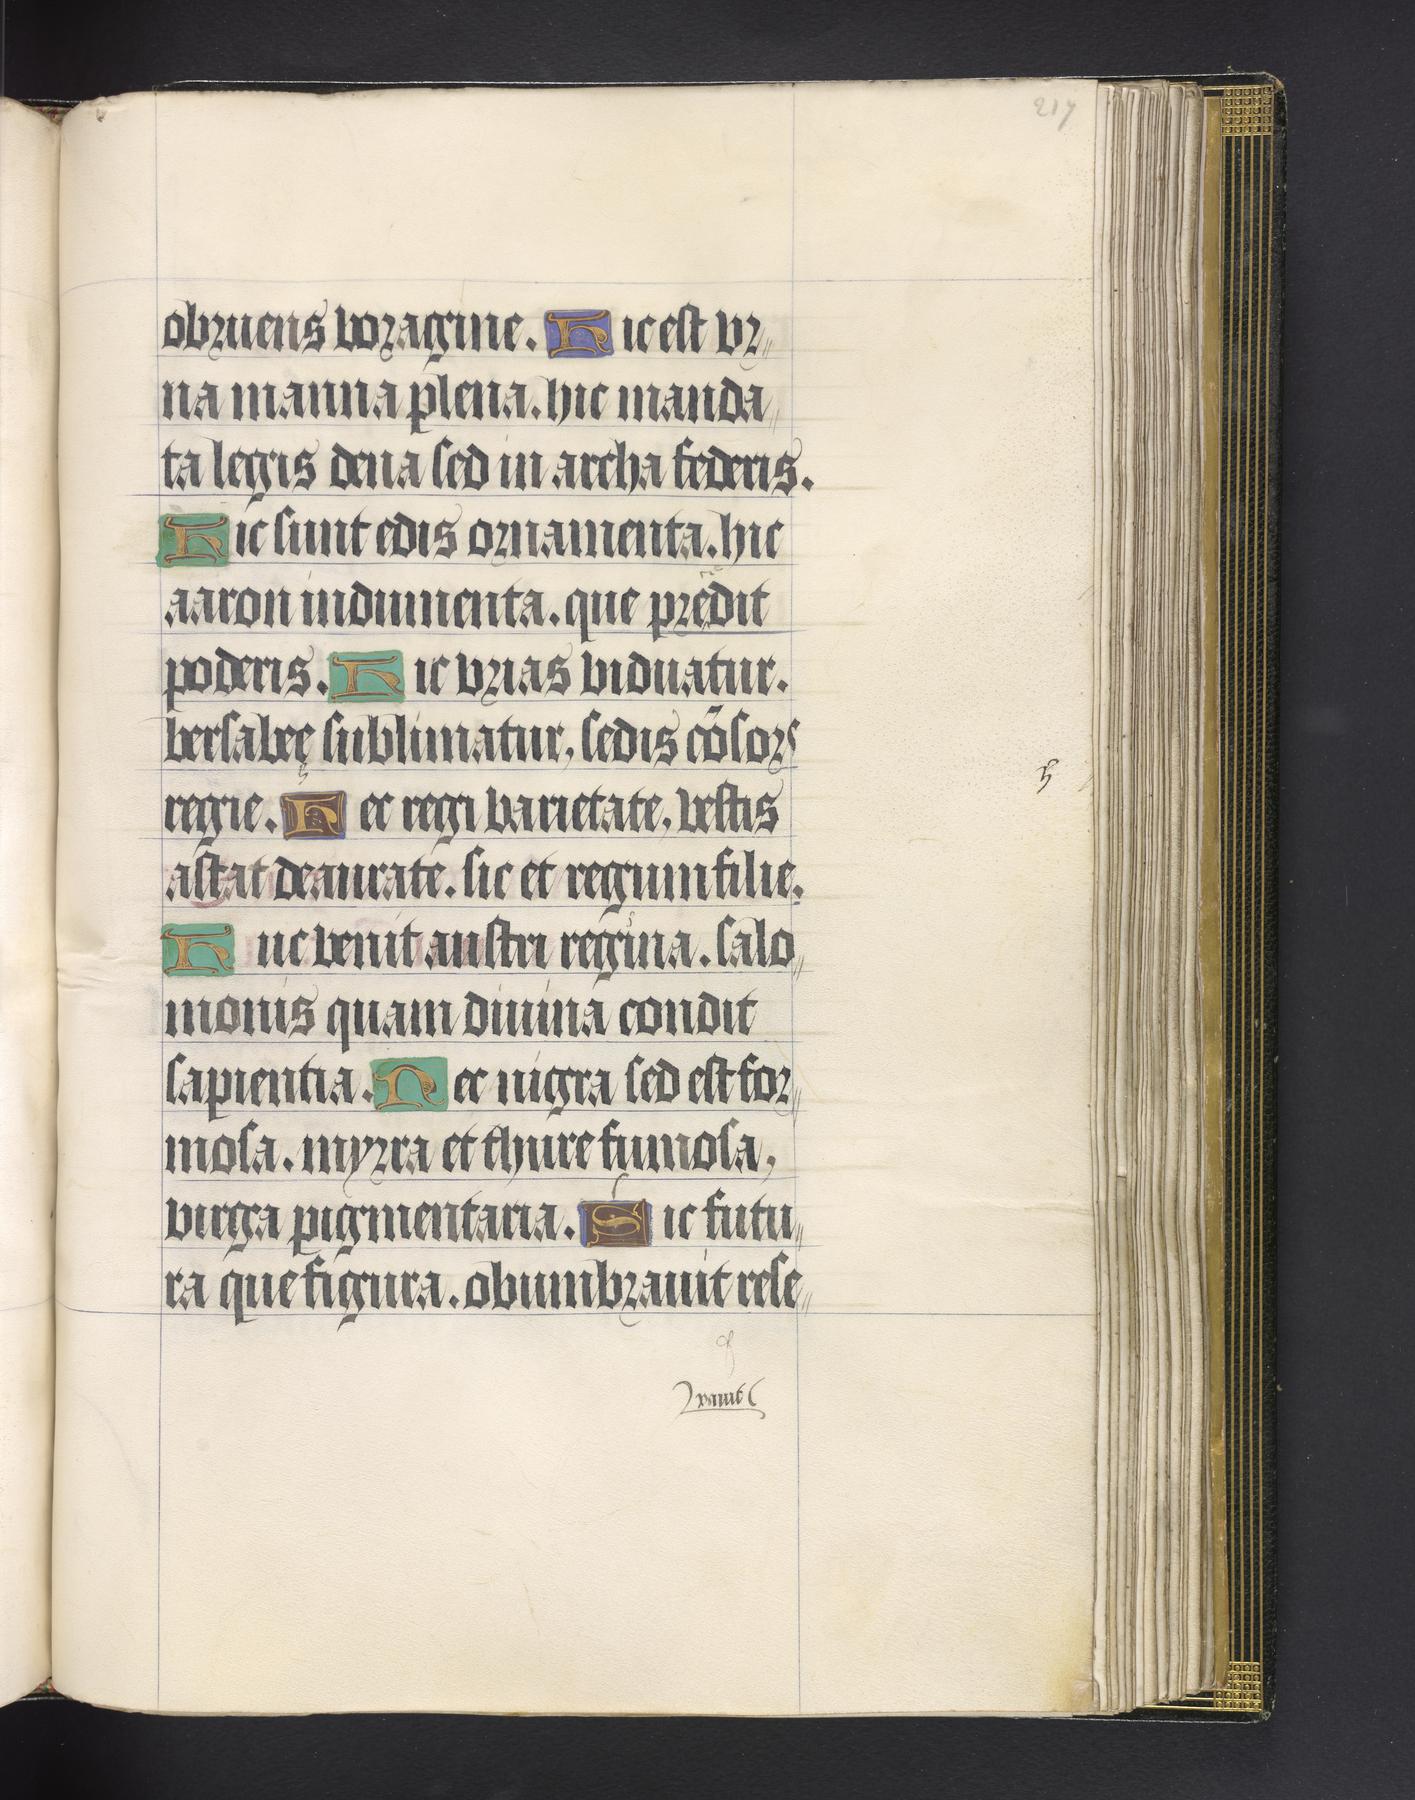 217
obruens voragine. Hic est vr〃
na manna plena. hic manda〃
ta legis dena sed in archa federis.
Hic sunt edis ornamenta. hic
aaron indumenta. que prędit
poderis. Hic vrias viduatur.
bersabeę sublimatur, sedis cōsors
regie. Hec regi varietate, vestis
astat deaurate. sic et regum filie.
Huc venit austri regina. salo〃
monis quam diuina condit
sapientia. Hec nigra sed est for〃
mosa. myrra et thure fumosa,
virga pigmentaria. Sic futu〃
ra que figura. obumbrauit rese〃
rauit